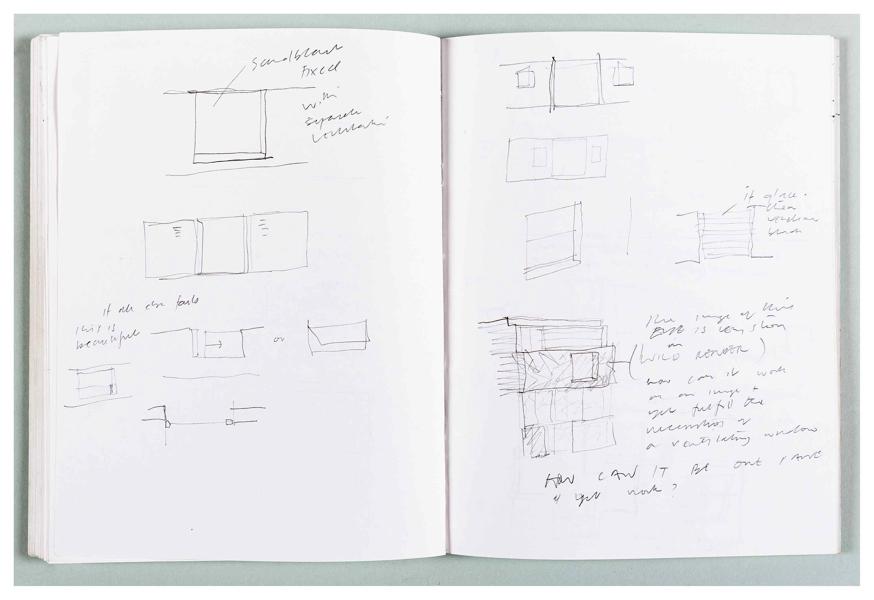 Sandblast
Fixed
with
Separate
Ventilation
If all else fails
this is
beautiful
or
if glass.
then
venetian
blind
The image of this
is very strong
(WILD RENDER)
how can it work
as an image &
yet fulfill the
necessities of
a ventilating window
HOW CAN IT BE ONE PANE
& yet work?